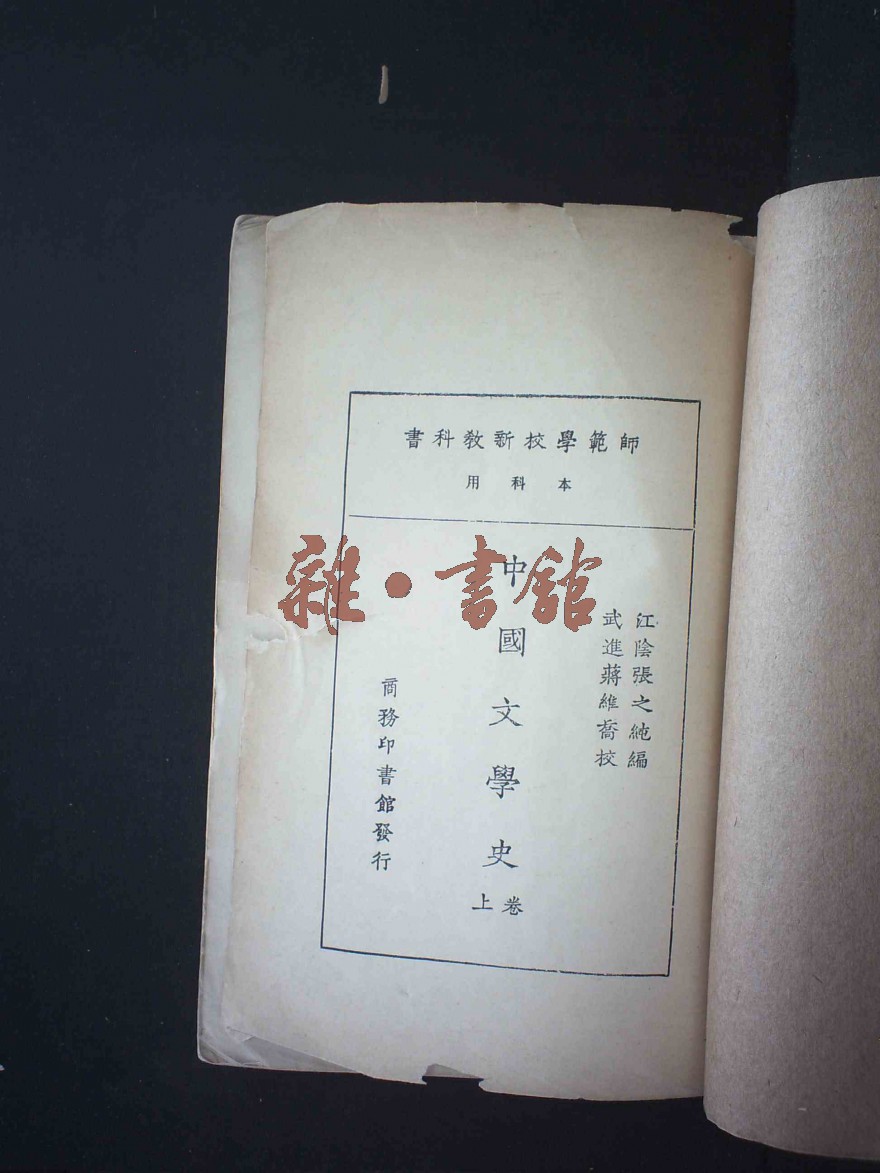 師範學校新教科書
本科用
江陰張之純編
武進蔣維喬校
中國文學史
卷上
商務印書館發行
雜·書館